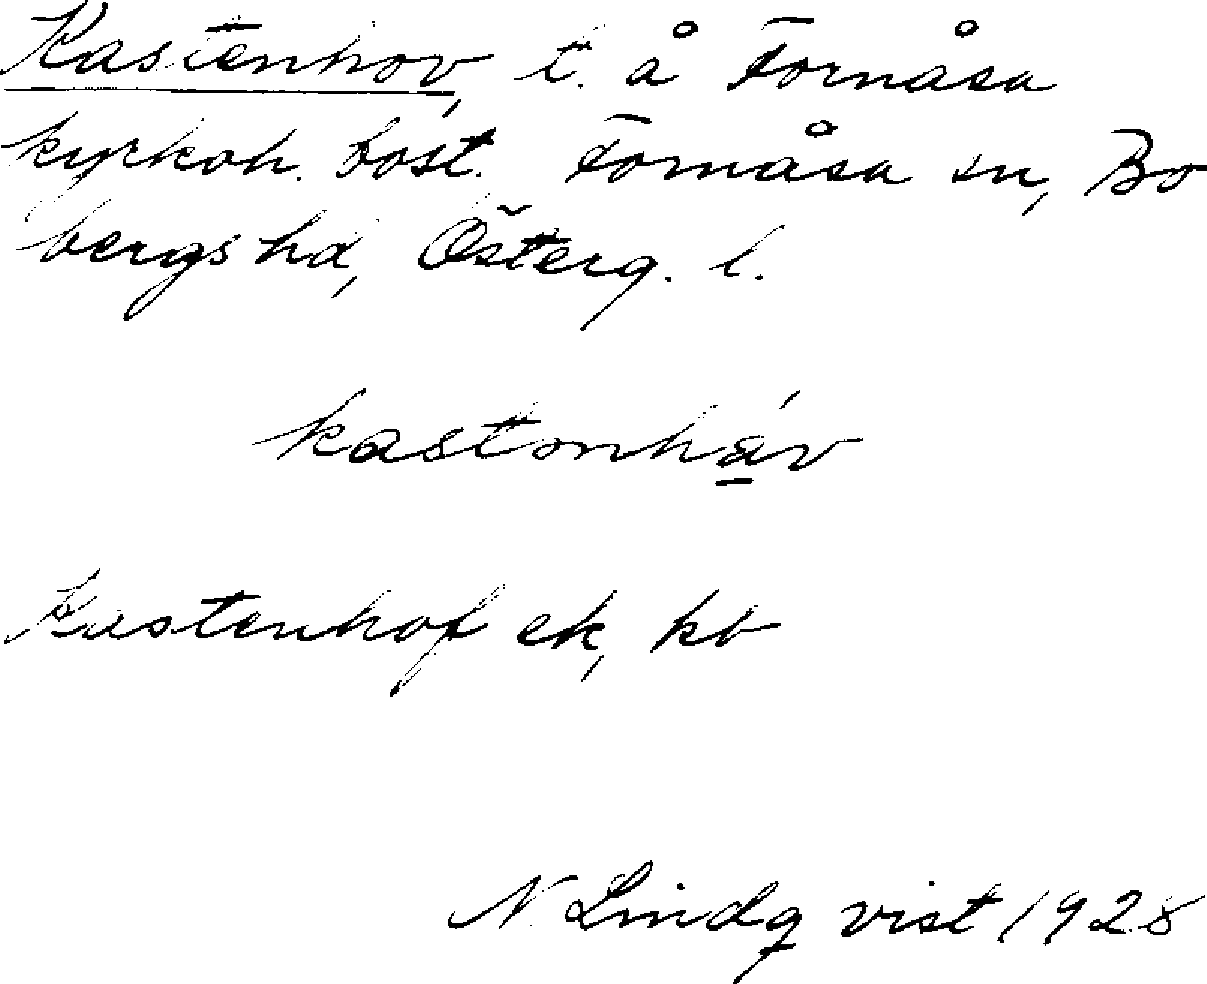 Kastenhov, t. å Fornåsa
kyrkoh. bost. Fornåsa sn, Bo
bergs hd, Österg. l.
kastonháv
Kastenhof ek, kb
N. Lindqvist 1928